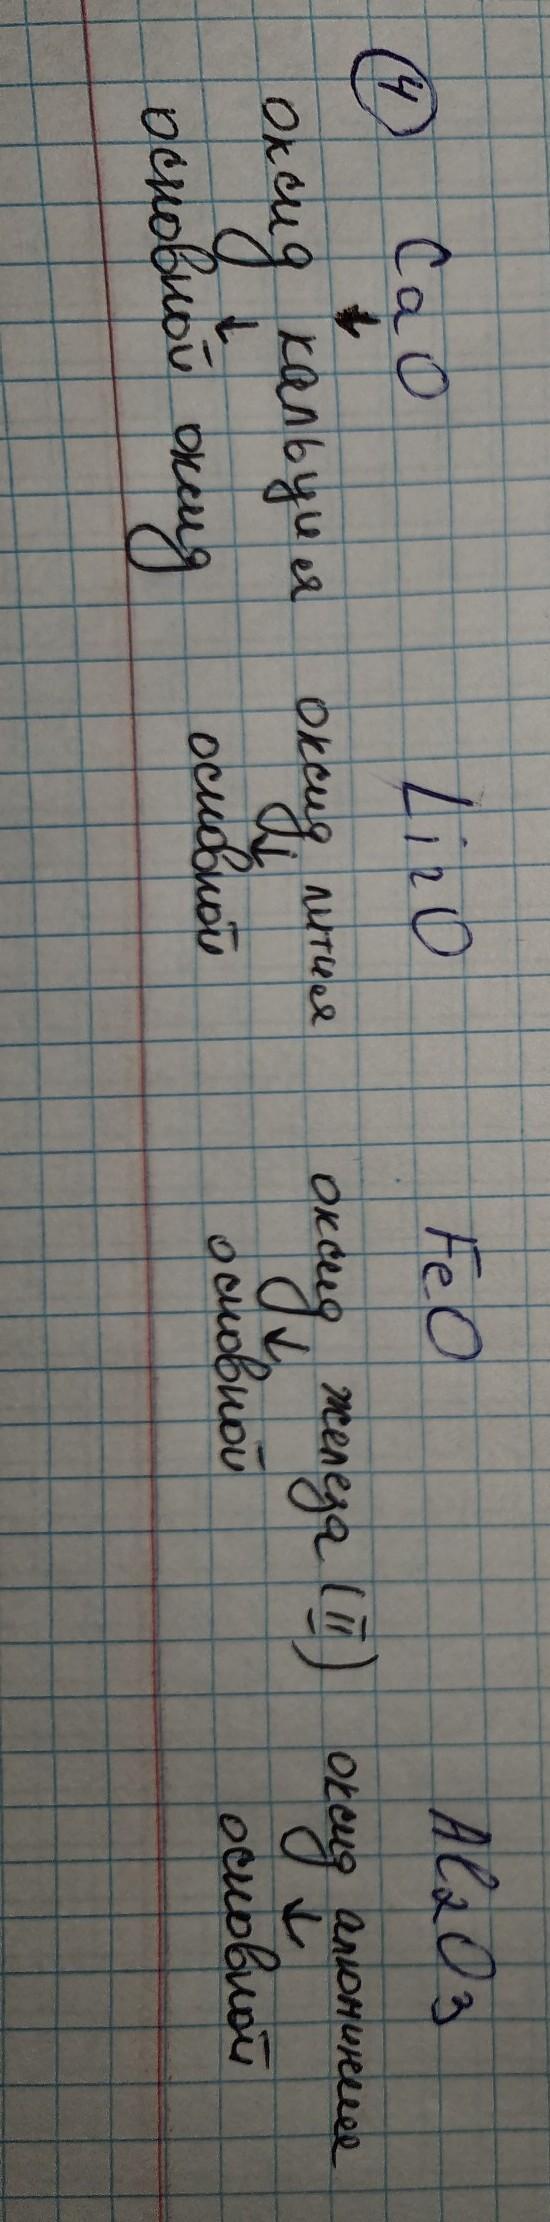 ④ CaO Li2O FeO Al2O3
оксид кальция оксид лития оксид железа (II) оксид алюминия
↓ ↓ ↓ ↓
основной оксид основной основной основной